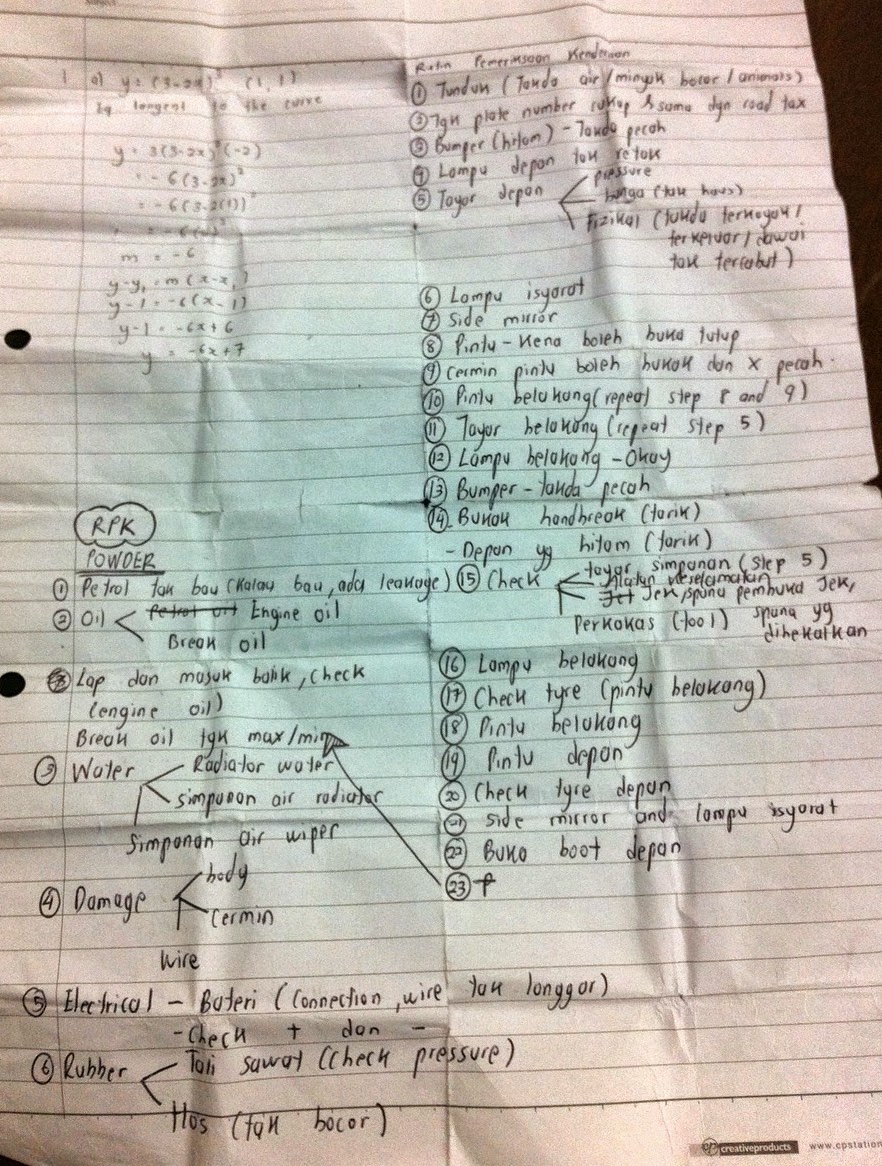 1 a) y = (3-2x)³ (1, 1)
Eq tangent to the curve
y = 3(3-2x)²(-2)
= -6(3-2x)²
= -6(3-2(1))²
m = -6
y-y₁ = m(x-x₁)
y-1 = -6(x-1)
y-1 = -6x+6
y = -6x+7
RPK
POWDER
① Petrol tak bau (kalau bau, ada leakage)
② Oil Petrol oil Engine oil
Break oil
③ Lap dan masuk balik, check
(engine oil)
Break oil tgk max/min
③ Water Radiator water
simpanan air radiator
Simpanan air wiper
④ Damage body
cermin
wire
⑤ Electrical - Bateri (Connection, wire tak longgar)
- Check + dan -
⑥ Rubber Tali sawat (Check pressure)
Hos (tak bocor)
Rutin Pemeriksaan Kenderaan
① Tunduk (Tanda air/minyak bocor/animals)
② Tgk plate number cukup & sama dgn road tax
③ Bumper (hitam) - Tanda pecah
④ Lampu depan tak retak
⑤ Tayar depan pressure
bunga (tak haus)
Fizikal (tanda terkoyak/
terkeluar/dawai
tak tercabut)
⑥ Lampu isyarat
⑦ Side mirror
⑧ Pintu - Kena boleh buka tutup
⑨ cermin pintu boleh bukak dan x pecah.
⑩ Pintu belakang (repeat step 8 and 9)
⑪ Tayar belakang (repeat step 5)
⑫ Lampu belakang - Okay
⑬ Bumper - tanda pecah
⑭. Bukak handbreak (tarik)
- Depan yg hitam (tarik)
⑮ Check tayar simpanan (step 5)
Alatan keselamatan
Jet Jek, spana pembuka Jek,
Perkakas (tool) spana yg
dibekalkan
⑯ Lampu belakang
⑰ Check tyre (pintu belakang)
⑱ Pintu belakang
⑲ Pintu depan
⑳ Check tyre depan
㉑ Side mirror and lampu isyarat
㉒ Buka boot depan
㉓ P
creativeproducts www.cpstation